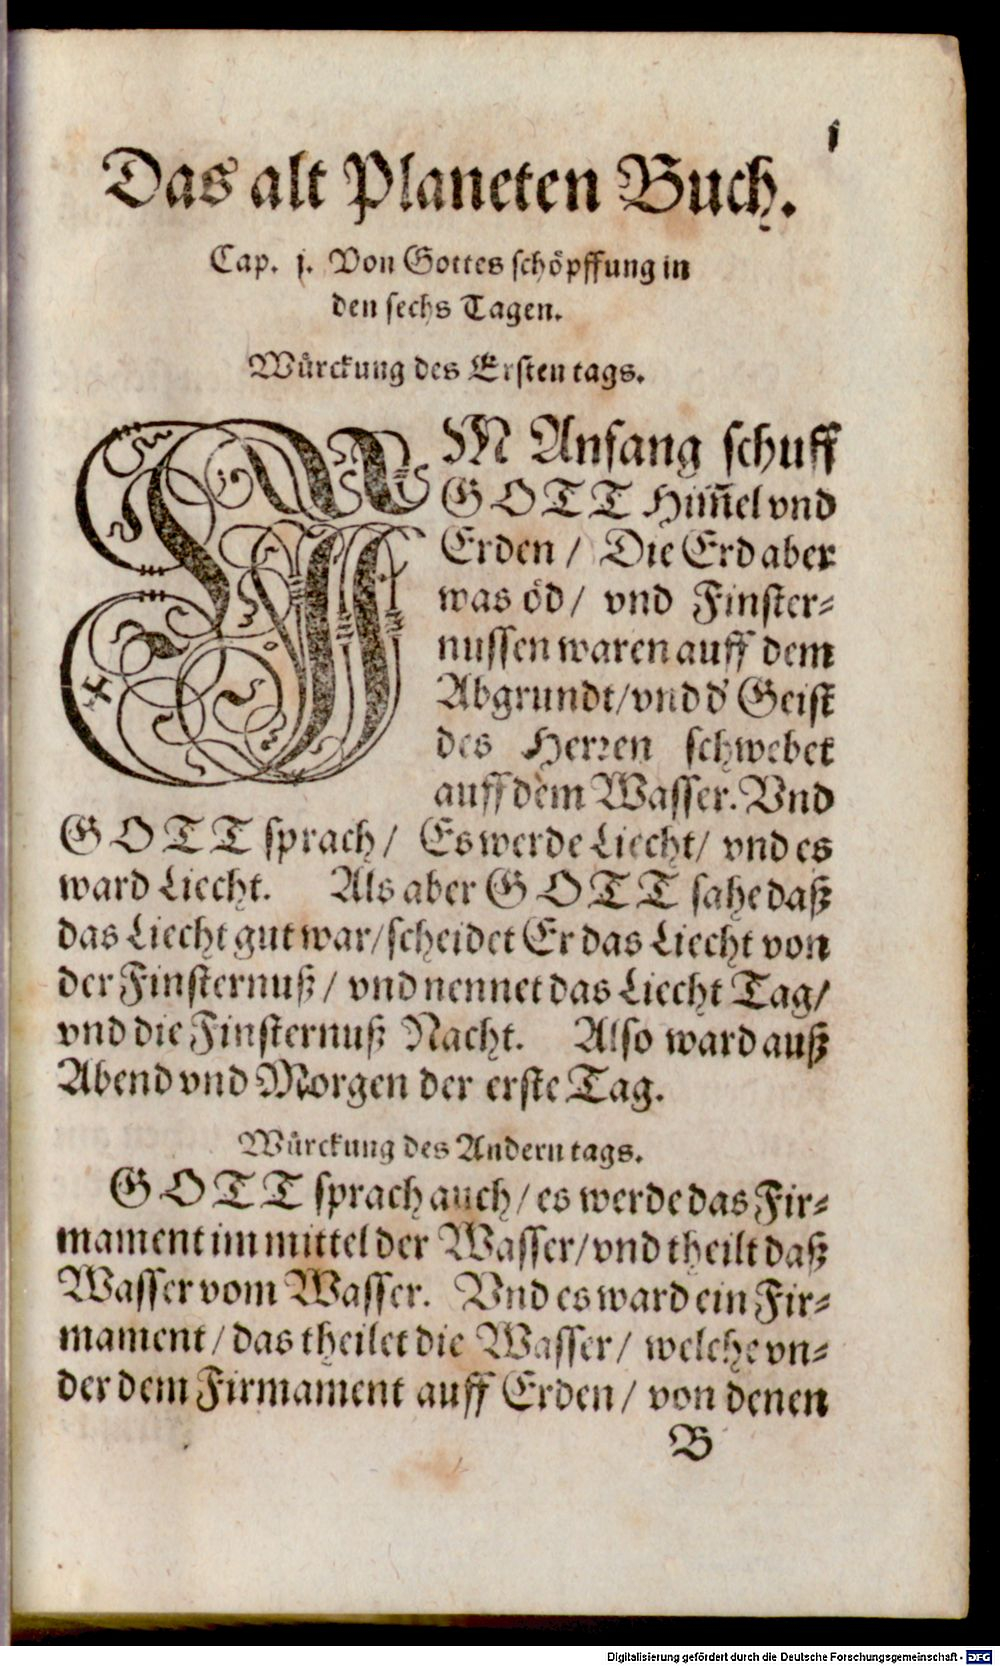 1
Das alt Planeten Buch.
Cap. j. Von Gottes schöpffung in
den sechs Tagen.
Würckung des Ersten tags.
IM Anfang schuff
GOTT Him̃el vnd
Erden / Die Erd aber
was öd / vnd Finster-
nussen waren auff dem
Abgrundt / vnd d' Geist
des Herren schwebet
auff dem Wasser. Vnd
GOTT sprach / Es werde Liecht / vnd es
ward Liecht. Als aber GOTT sahe daß
das Liecht gut war / scheidet Er das Liecht von
der Finsternuß / vnd nennet das Liecht Tag /
vnd die Finsternuß Nacht. Also ward auß
Abend vnd Morgen der erste Tag.
Würckung des Andern tags.
GOTT sprach auch / es werde das Fir-
mament im mittel der Wasser / vnd theilt daß
Wasser vom Wasser. Vnd es ward ein Fir-
mament / das theilet die Wasser / welche vn-
der dem Firmament auff Erden / von denen
B
Digitalisierung gefördert durch die Deutsche Forschungsgemeinschaft - DFG